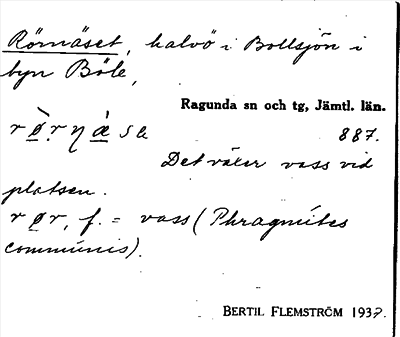 Rörnäset, halvö i Bollsjön i
byn Böle,
Ragunda sn och tg, Jämtl. län.
887.
Det växer vass vid
platsen.
rør, f. = vass (Phragmites
communis).
BERTIL FLEMSTRÖM 1937.